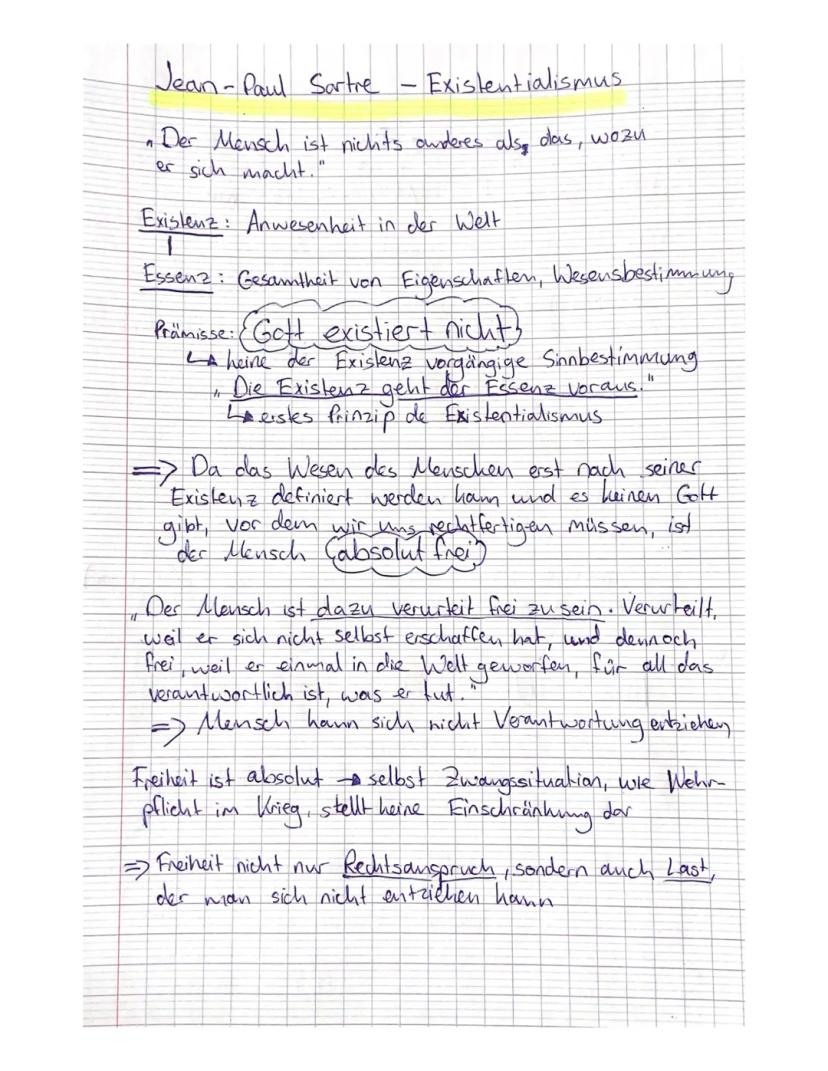 Jean-Paul Sartre - Existentialismus
„Der Mensch ist nichts anderes als, das, wozu
er sich macht."
Existenz: Anwesenheit in der Welt
Essenz: Gesamtheit von Eigenschaften, Wesensbestimmung
Prämisse: Gott existiert nicht
↳ keine der Existenz vorgängige Sinnbestimmung
„Die Existenz geht der Essenz voraus."
↳ erstes Prinzip de Existentialismus
=> Da das Wesen des Menschen erst nach seiner
Existenz definiert werden kann und es keinen Gott
gibt, vor dem wir uns rechtfertigen müssen, ist
der Mensch absolut frei
„Der Mensch ist dazu verurteit frei zu sein. Verurteilt,
weil er sich nicht selbst erschaffen hat, und dennoch
frei, weil er einmal in die Welt geworfen, für all das
verantwortlich ist, was er tut."
=> Mensch kann sich nicht Verantwortung entziehen
Freiheit ist absolut → selbst Zwangssituation, wie Wehr-
pflicht im Krieg, stellt keine Einschränkung dar
=> Freiheit nicht nur Rechtsanspruch, sondern auch Last,
der man sich nicht entziehen kann